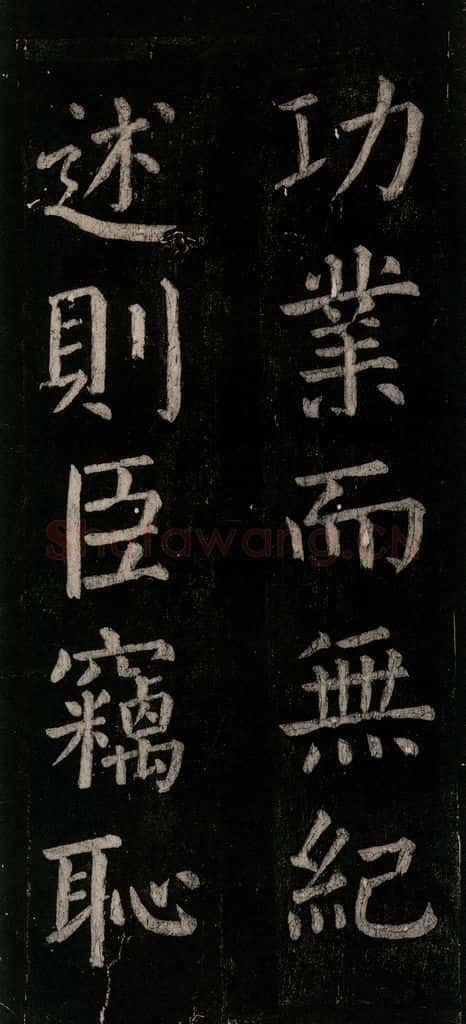 功業而無紀
述則臣竊恥
Shufawang.cn